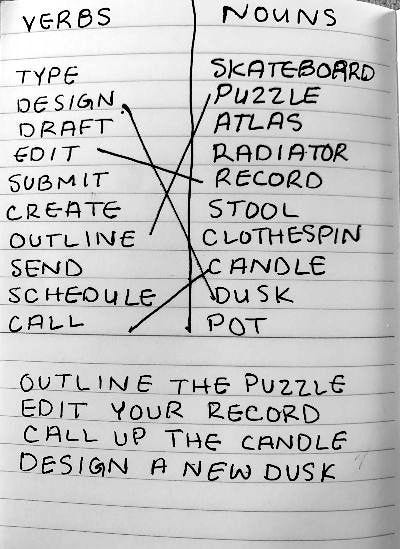 VERBS NOUNS
TYPE SKATEBOARD
DESIGN PUZZLE
DRAFT ATLAS
EDIT RADIATOR
SUBMIT RECORD
CREATE STOOL
OUTLINE CLOTHESPIN
SEND CANDLE
SCHEDULE DUSK
CALL POT
OUTLINE THE PUZZLE
EDIT YOUR RECORD
CALL UP THE CANDLE
DESIGN A NEW DUSK